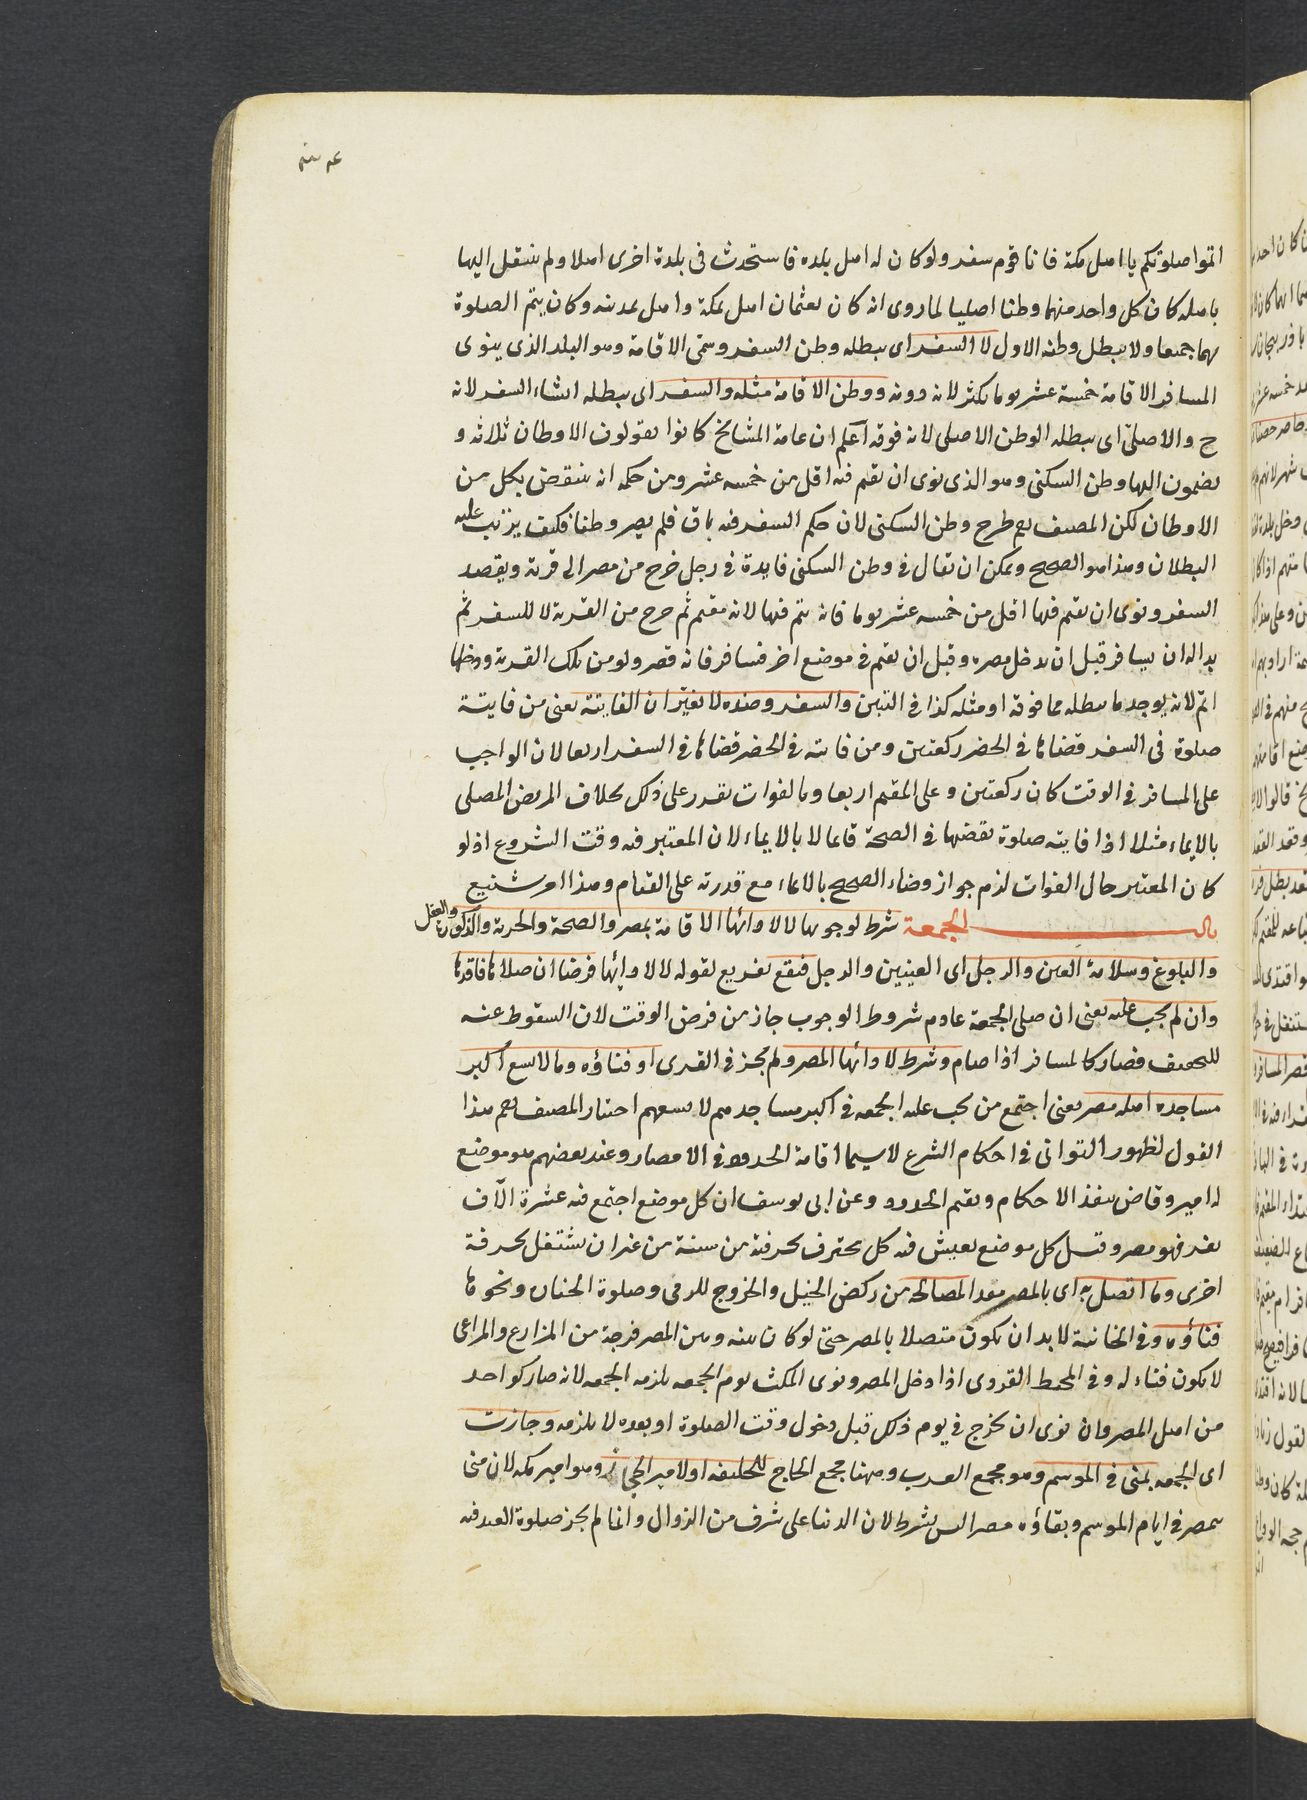 اتموا صلوتكم يا اهل مكة فانا قوم سفر ولو كان له اهل بلده فاستحدث فى بلدة اخرى اهلا ولم ينتقل اليها
باهله كان كل واحد منهما وطنا اصليا لما روى انه كان لعثمان اهل بمكة واهل بمدينه وكان يتم الصلوة
بهما جميعا ولا يبطل وطنه الاول لا السفر اى يبطله وطن السفر وسمى الاقامة وهو البلد الذى ينوى
المسافر الاقامة خمسة عشر يوما لانه دونه ووطن الاقامة مثله والسفر اى يبطله انشاء السفر لانه
ح والاصلى اى يبطله الوطن الاصلى لانه فوقه اعلم ان عامة المشايخ كانوا يقولون الاوطان ثلاثه و
يضمون اليها وطن السكنى وهو الذى نوى ان يقيم فيه اقل من خمسه عشر ومن حكمه انه ينتقض بكل من
الاوطان لكن المصنف رحم طرح وطن السكنى لان حكم السفر فيه باق فلم يصر وطنا فكيف يترتب عليه
البطلان وهذا هو الصحيح ويمكن ان يقال فى وطن السكنى فايدة فى رجل خرج من مصر الى قرية ويقصد
السفر ونوى ان يقيم فيها اقل من خمسه عشر يوما فانه يتم فيها لانه مقيم ثم خرج من القرية لا للسفر ثم
بدا له ان يسافر قبل ان يدخل مصره وقبل ان يقيم فى موضع اخر فسافر فانه قصر ولو من تلك القرية ودخلها
اتم لانه يوجد ما يبطله مما فوقه او مثله كذا فى التبيين والسفر وضده لا يغيران الفايتة يعنى من فايتة
صلوة فى السفر قضاها فى الحضر ركعتين ومن فايته فى الحضر قضاها فى السفر اربعا لان الواجب
على المسافر فى الوقت كان ركعتين وعلى المقيم اربعا وبالفوات يقدر على ذلك بخلاف المريض المصلى
بالايماء مثلا اذا فايته صلوة يقضيها فى الصحة قائما لا بالايماء لان المعتبر فيه وقت الشروع اذ لو
كان المعتبر حال الفوات لزم جواز قضاء الصحيح بالايماء مع قدرته على القيام وهذا امر شنيع
باب الجمعة شرط لوجوبها لا لادائها الاقامة بمصر والصحة والحرية والذكورة والعقل
والبلوغ وسلامة العين والرجل اى العينين والرجل فتقع تفريع لقوله لا لادائها فرضا ان صلاها فاقدها
وان لم يجب عليه يعنى ان صلى الجمعة عادم شروط الوجوب جاز من فرض الوقت لان السقوط عنه
للتخفيف فصار كالمسافر اذا صام وشرط لادائها المصر ولم يجز فى القرى او فناؤه وما لا يسع اكبر
مساجده اهله مصر يعنى اجتمع من يجب عليه الجمعه فى اكبر مساجدهم لا يسعهم اختار المصنف رحم هذا
القول لظهور التوانى فى احكام الشرع لا سيما اقامة الحدود فى الامصار وعند بعضهم هو موضع
له امير وقاض ينفذ الاحكام ويقيم الحدود وعن ابى يوسف ان كل موضع اجتمع فيه عشرة الآف
نفر فهو مصر وقيل كل موضع يعيش فيه كل محترف بحرفته من سنة من غير ان يشتغل بحرفة
اخرى وما اتصل به اى بالمصر معد المصالحه من ركض الخيل والخروج للرمى وصلوة الجنازه ونحوها
فناؤه وفى الخانية لابد ان يكون متصلا بالمصر حتى لو كان بينه وبين المصر فرجة من المزارع والمراعى
لا يكون فناء له وفى المحيط القروى اذا دخل المصر ونوى المكث يوم الجمعه يلزمه الجمعه لانه صار كواحد
من اهل المصر وان نوى ان يخرج فى يوم ذلك قبل دخول وقت الصلوة او بعده لا يلزمه وجازت
اى الجمعه بمنى فى الموسم وهو مجمع العرب وههنا مجمع الحاج للخليفه او لامير الحجاز وهو امير مكه لان منى
يمصر فى ايام الموسم وبقاؤه مصرا ليس بشرط لان الدنيا على شرف من الزوال وانما لم يجز صلوة العيد فيه